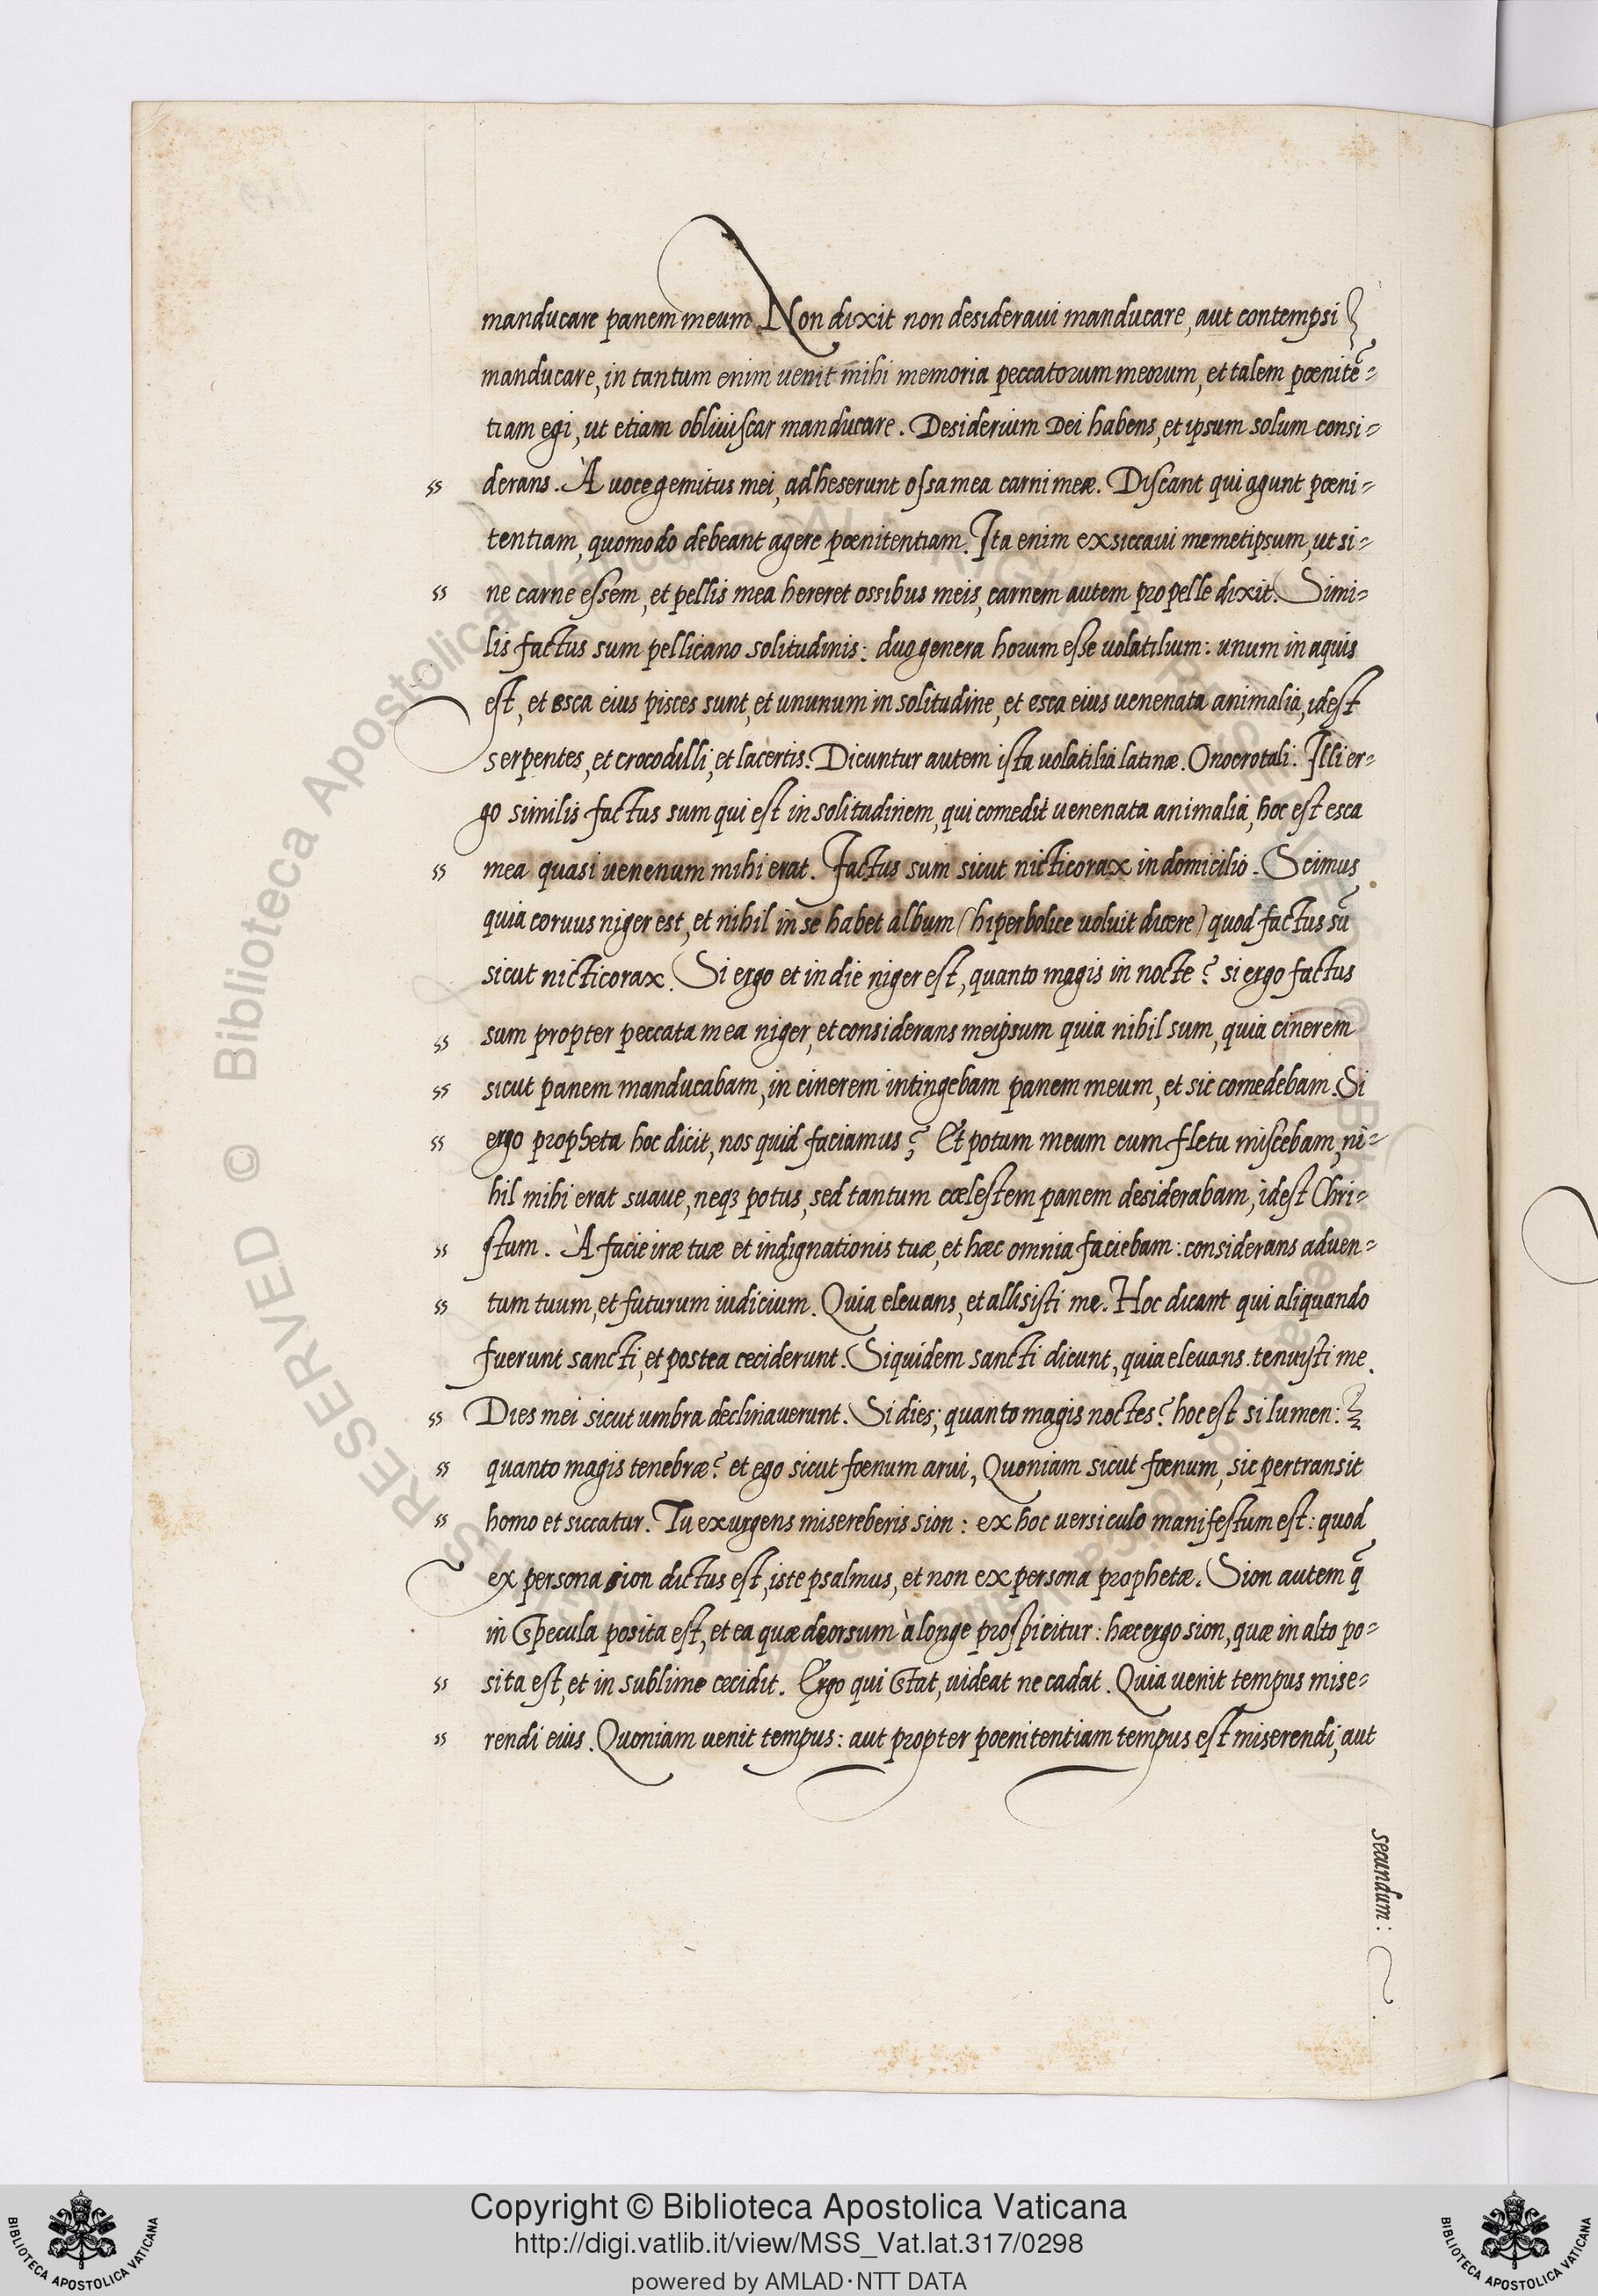 manducare panem meum. Non dixit non desideraui manducare, aut contempsi
manducare, in tantum enim uenit mihi memoria peccatorum meorum, et talem pœnitē=
tiam egi, ut etiam obliuiscar manducare. Desiderium Dei habens, et ipsum solum consi=
derans. À uoce gemitus mei, adheserunt ossa mea carni meæ. Discant qui agunt pœni=
tentiam, quomodo debeant agere pœnitentiam. Ita enim exsiccaui memetipsum, ut si=
ne carne essem, et pellis mea hereret ossibus meis, carnem autem pro pelle dixit. Simi=
lis factus sum pellicano solitudinis: duo genera horum esse uolatilium: unum in aquis
est, et esca eius pisces sunt, et ununum in solitudine, et esca eius uenenata animalia, idest
serpentes, et crocodilli, et lacertis. Dicuntur autem ista uolatilia latinæ. Onocrotali. Illi er=
go similis factus sum qui est in solitudinem, qui comedit uenenata animalia, hoc est esca
mea quasi uenenum mihi erat. Factus sum sicut nicticorax in domicilio. Scimus
quia coruus niger est, et nihil in se habet album (hiperbolice uoluit dicere) quod factus sū
sicut nicticorax. Si ergo et in die niger est, quanto magis in nocte? si ergo factus
sum propter peccata mea niger, et considerans meipsum quia nihil sum, quia cinerem
sicut panem manducabam, in cinerem intingebam panem meum, et sic comedebam. Si
ergo propheta hoc dicit, nos quid faciamus? Et potum meum cum fletu miscebam, ni=
hil mihi erat suaue, neq3 potus, sed tantum cœlestem panem desiderabam, idest Chri=
stum. À facie iræ tuæ et indignationis tuæ, et hæc omnia faciebam: considerans aduen=
tum tuum, et futurum iudicium. Quia eleuans, et allisisti me. Hoc dicant qui aliquando
fuerunt sancti, et postea ceciderunt. Siquidem sancti dicunt, quia eleuans tenuisti me.
Dies mei sicut umbra declinauerunt. Si dies; quanto magis noctes? hoc est si lumen:
quanto magis tenebræ? et ego sicut fœnum arui, Quoniam sicut fœnum, sic pertransit
homo et siccatur. Tu exurgens misereberis sion: ex hoc uersiculo manifestum est: quod
ex persona sion dictus est, iste psalmus, et non ex persona prophetæ. Sion autem q̄
in specula posita est, et ea quæ deorsum à longe prospicitur: hæc ergo sion, quæ in alto po=
sita est, et in sublime cecidit. Ergo qui stat, uideat ne cadat. Quia uenit tempus mise=
rendi eius. Quoniam uenit tempus: aut propter poenitentiam tempus est miserendi; aut
secundum:
Copyright © Biblioteca Apostolica Vaticana
http://digi.vatlib.it/view/MSS_Vat.lat.317/0298
powered by AMLAD·NTT DATA